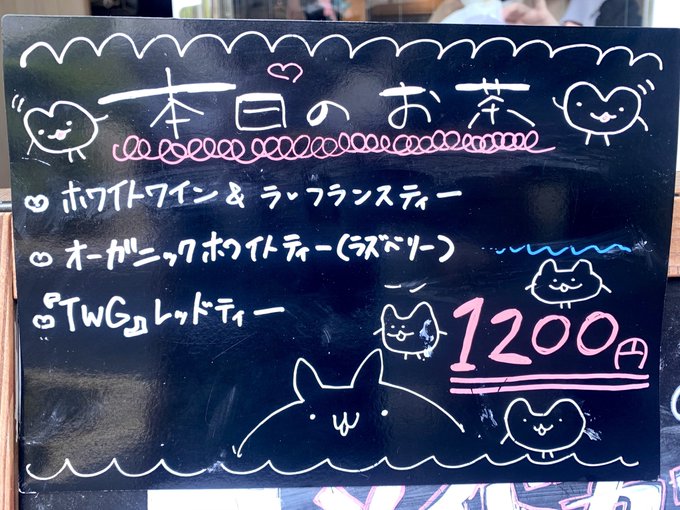 本日のお茶
ホワイトワイン & ラ・フランスティー
オーガニックホワイトティー(ラズベリー)
『TWG』レッドティー
1200円